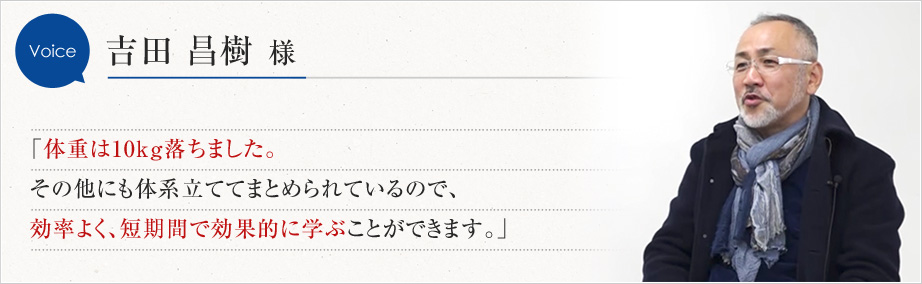 Voice
吉田 昌樹 様
「体重は10kg落ちました。
その他にも体系立ててまとめられているので、
効率よく、短期間で効果的に学ぶことができます。」